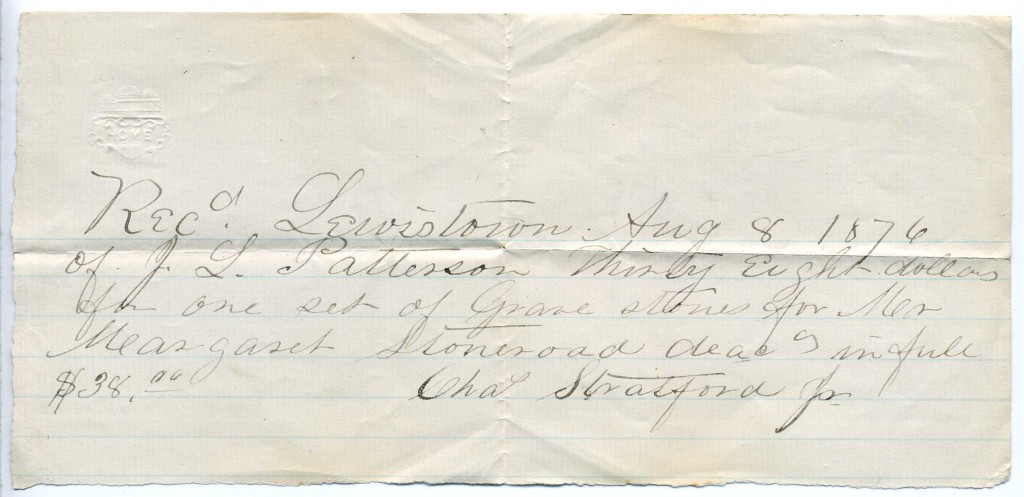 LOVE
Recd. Lewistown Aug 8 1876
of J. L. Patterson Thirty Eight dollars
for one set of Grave stones for Mer
Meargaret Stoneroad deacd in full
$38.00 Chal Stratford Jr